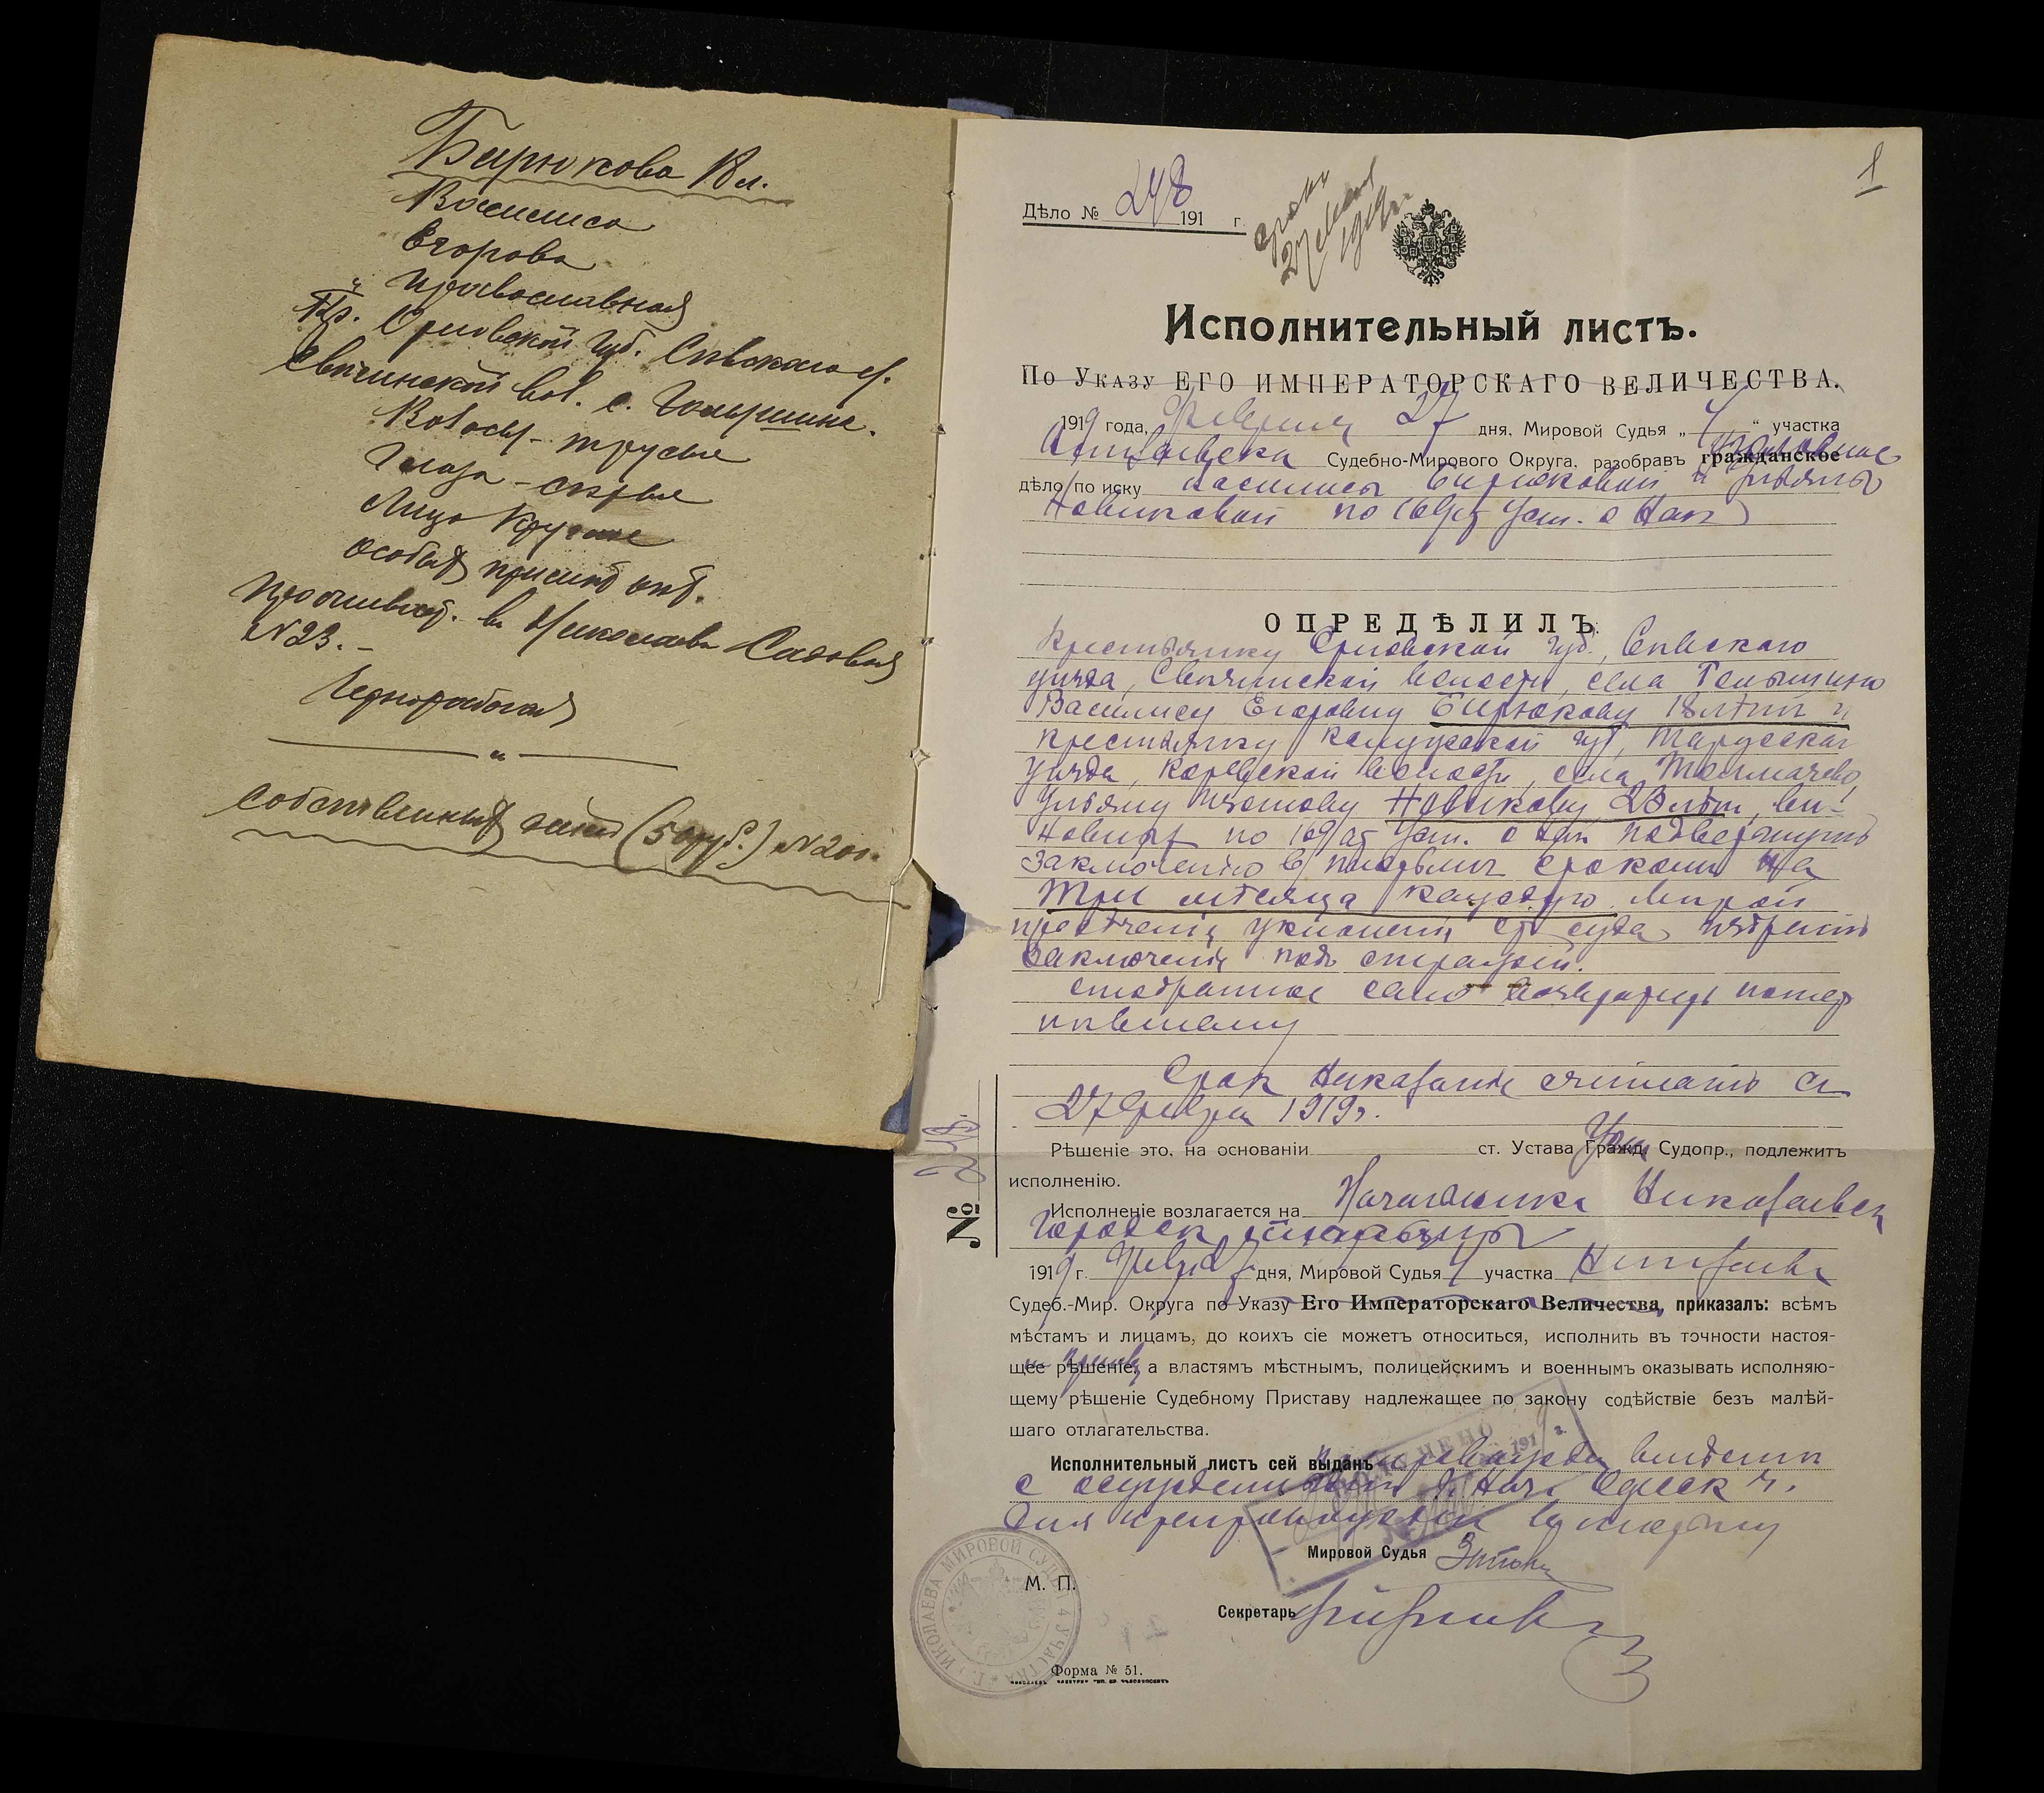 Бирюкова 18 л.
Василиса
Егорова
православная
Кр. Орловской губ. Сѣвскаго у.
Свѣчинской вол. с. Голышина.
Волосы - русые
Глаза - сѣрые
Лицо круглое
особых примѣт нѣт.
Проживает. в Николаеве Садовая
N 23. -
Чернорабочая
собственных денег (50 руб.) N 201.
1
Дѣло № 248 191 г.
Срок с
27 февраля
1919 г.
Исполнительный листъ.
По Указу ЕГО ИМПЕРАТОРСКАГО ВЕЛИЧЕСТВА.
1919 года, Февраля 27 дня, Мировой Судья „ 4 “ участка
Николаевска Судебно-Мирового Округа, разобравъ гражданское уголовное
дѣло по иску Василисы Бирюковой и Ульяны
Новиковой по 169 ст Уст. о Нак
ОПРЕДѢЛИЛЪ:
Крестьянку Орловской губ., Сѣвскаго
уѣзда, Свѣчинской волости, села Голышино
Василису Егоровну Бирюкову 18 лѣтъ и
крестьянку Калужской губ, Тарусскаго
уѣзда, волости, села
Ульяну Новикову, 23 лѣт, ви-
новных по 169 ст Уст. о Нак подвергнуть
заключению в тюрьмѣ сроком на
три мѣсяца каждую. Мѣрой
пресѣчения уклонения от суда избрать
заключенія подъ стражей.
отобранное сало возвратить потер
пѣвшему
Срок Наказания считать с
27 февраля 1919 г.
Рѣшеніе это, на основаніи ст. Устава Гражд. Уго Судопр., подлежитъ
исполненію.
Исполненіе возлагается на Начальника Николаевск
городск тюрьмы
№ 248
1919 г. Февр 27 дня, Мировой Судья 4 участка Николаевск
Судеб.-Мир. Округа по Указу Его Императорскаго Величества, приказалъ: всѣмъ
мѣстамъ и лицамъ, до коихъ сіе можетъ относиться, исполнить въ точности настоя-
щее рѣшеніе, а властямъ мѣстнымъ, полицейскимъ и военнымъ оказывать исполняю-
щему рѣшеніе Судебному Приставу надлежащее по закону содѣйствіе безъ малѣй-
шаго отлагательства.
Исполнительный листъ сей выданъ
с
для препровождения в тюрьму
ПОЛУЧЕНО
191 г.
№
Мировой Судья
М. П.
Секретарь
Г. НИКОЛАЕВА МИРОВОЙ СУДЬЯ 4 УЧАСТКА
Форма № 51.